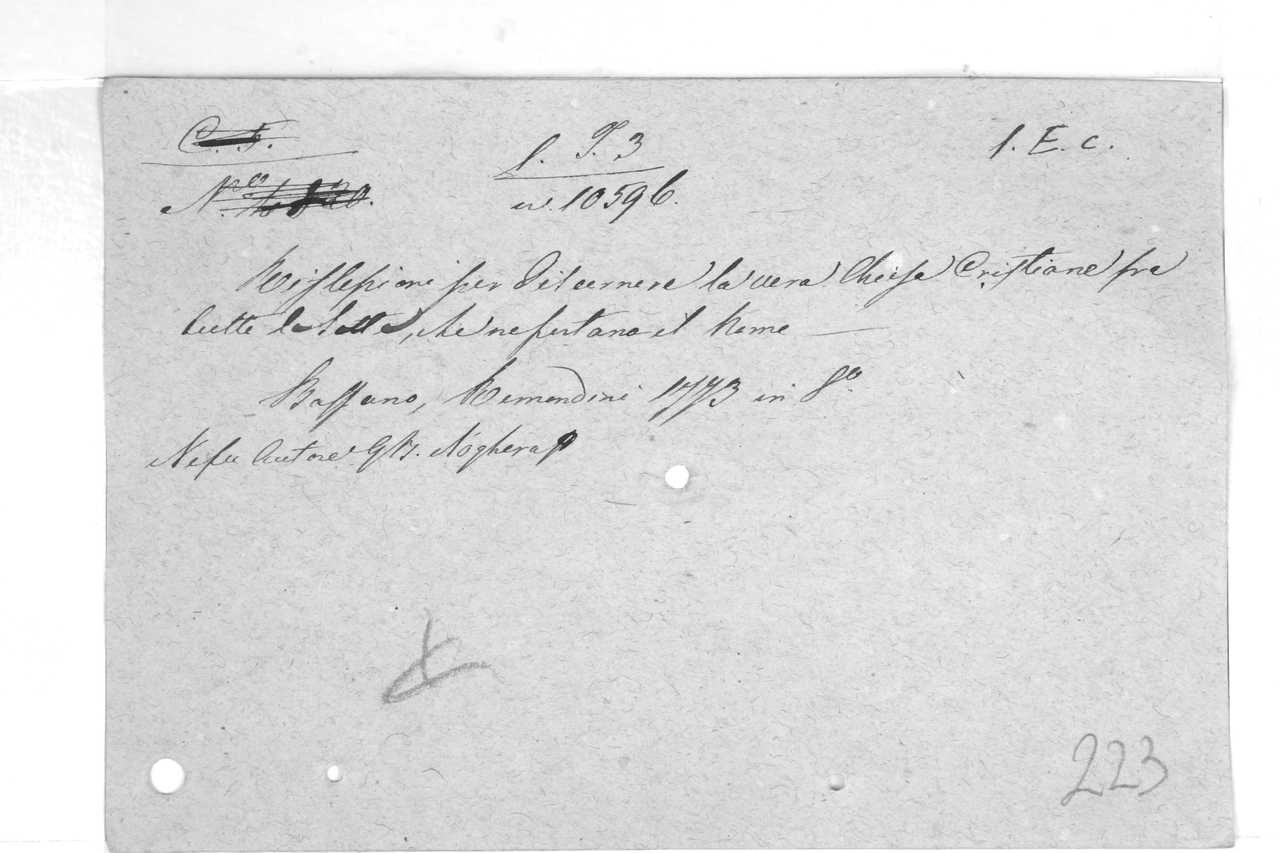 C. F.
N.ro
1. P. 3
n. 10596.
1. E. c.
Riflessioni per discernere la vera Chiesa Cristiana fra
tutte le Sette, che ne portano il Nome —
Bassano, Remondini 1773 in 8o.
Ne fu Autore GB. Noghera
223